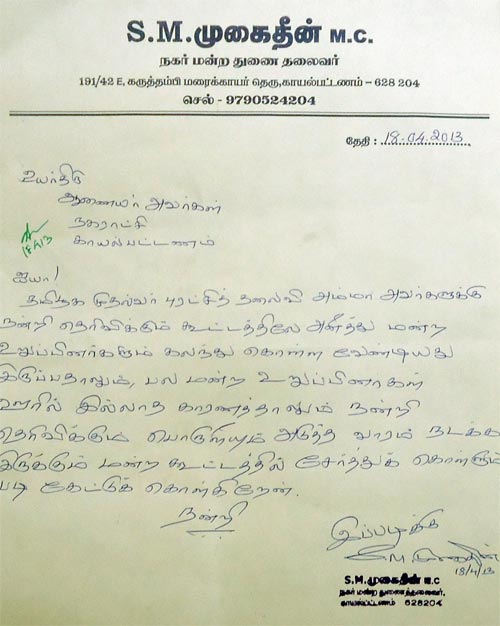 S.M.முகைதீன் M.C.
நகர் மன்ற துணை தலைவர்
191/42 E, கருத்தம்பி மரைக்காயர் தெரு,காயல்பட்டணம் – 628 204
செல் - 9790524204
தேதி : 18.04.2013
உயர்திரு
ஆணையர் அவர்கள்
நகராட்சி
காயல்பட்டணம்
18/4/13
ஐயா!
தமிழக முதல்வர் புரட்சித் தலைவி அம்மா அவர்களுக்கு
நன்றி தெரிவிக்கும் கூட்டத்திலே அனைத்து மன்ற
உறுப்பினர்களும் கலந்து கொள்ள வேண்டியது
இருப்பதாலும், பல மன்ற உறுப்பினர்கள்
ஊரில் இல்லாத காரணத்தாலும் நன்றி
தெரிவிக்கும் பொருளையும் அடுத்த வாரம் நடக்க
இருக்கும் மன்ற கூட்டத்தில் சேர்த்துக் கொள்ளும்
படி கேட்டுக் கொள்கிறேன்.
நன்றி
இப்படிக்கு
18/4/13
S.M.முகைதீன் M.C
நகர் மன்ற துணைத்தலைவர்,
காயல்பட்டணம் 628204